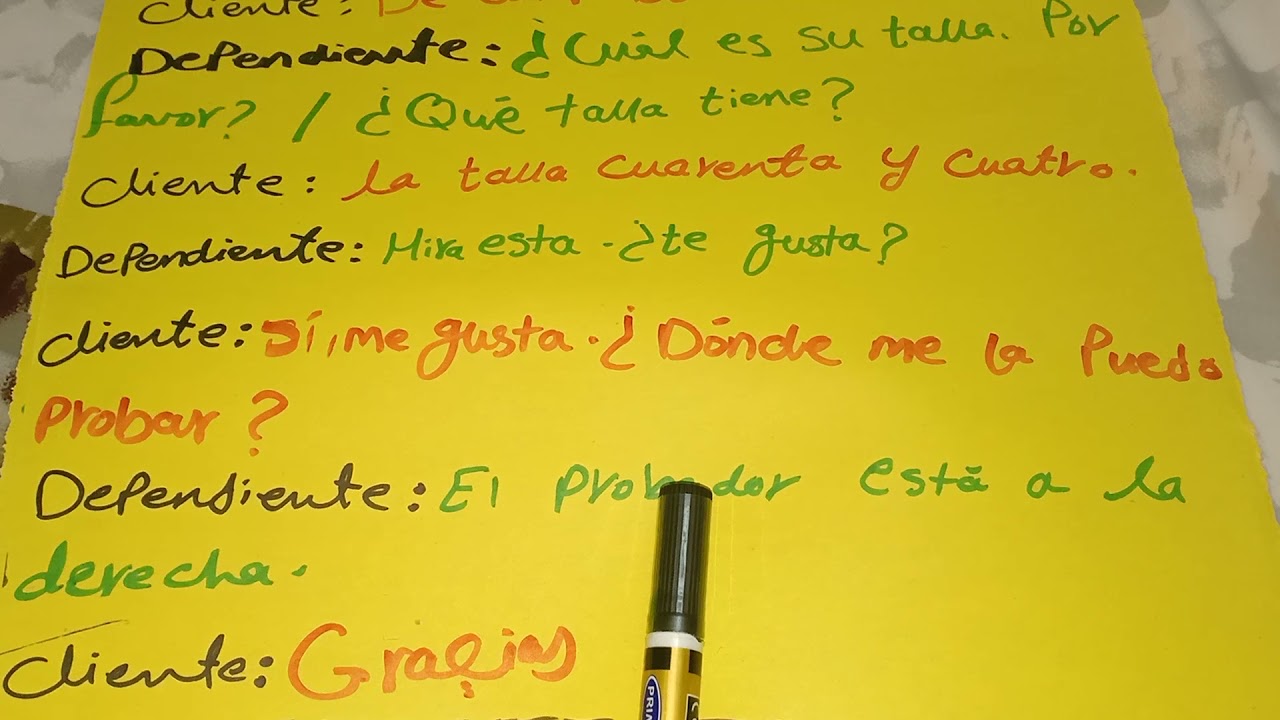 Cliente: De
Dependiente: ¿Cuál es su talla. Por
favor? / ¿Qué talla tiene?
Cliente: la talla cuarenta y cuatro.
Dependiente: Mira esta. ¿te gusta?
cliente: Sí, me gusta. ¿Dónde me la Puedo
Probar?
Dependiente: El probador está a la
derecha.
Cliente: Gracias
PRI